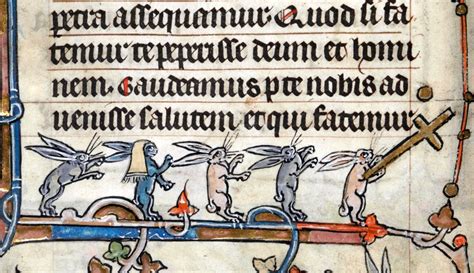 petra assequamur Quod si fa
temur te peperisse deum et homi
nem. Gaudeamus p te nobis ad
uenisse salutem. et qui fatemur